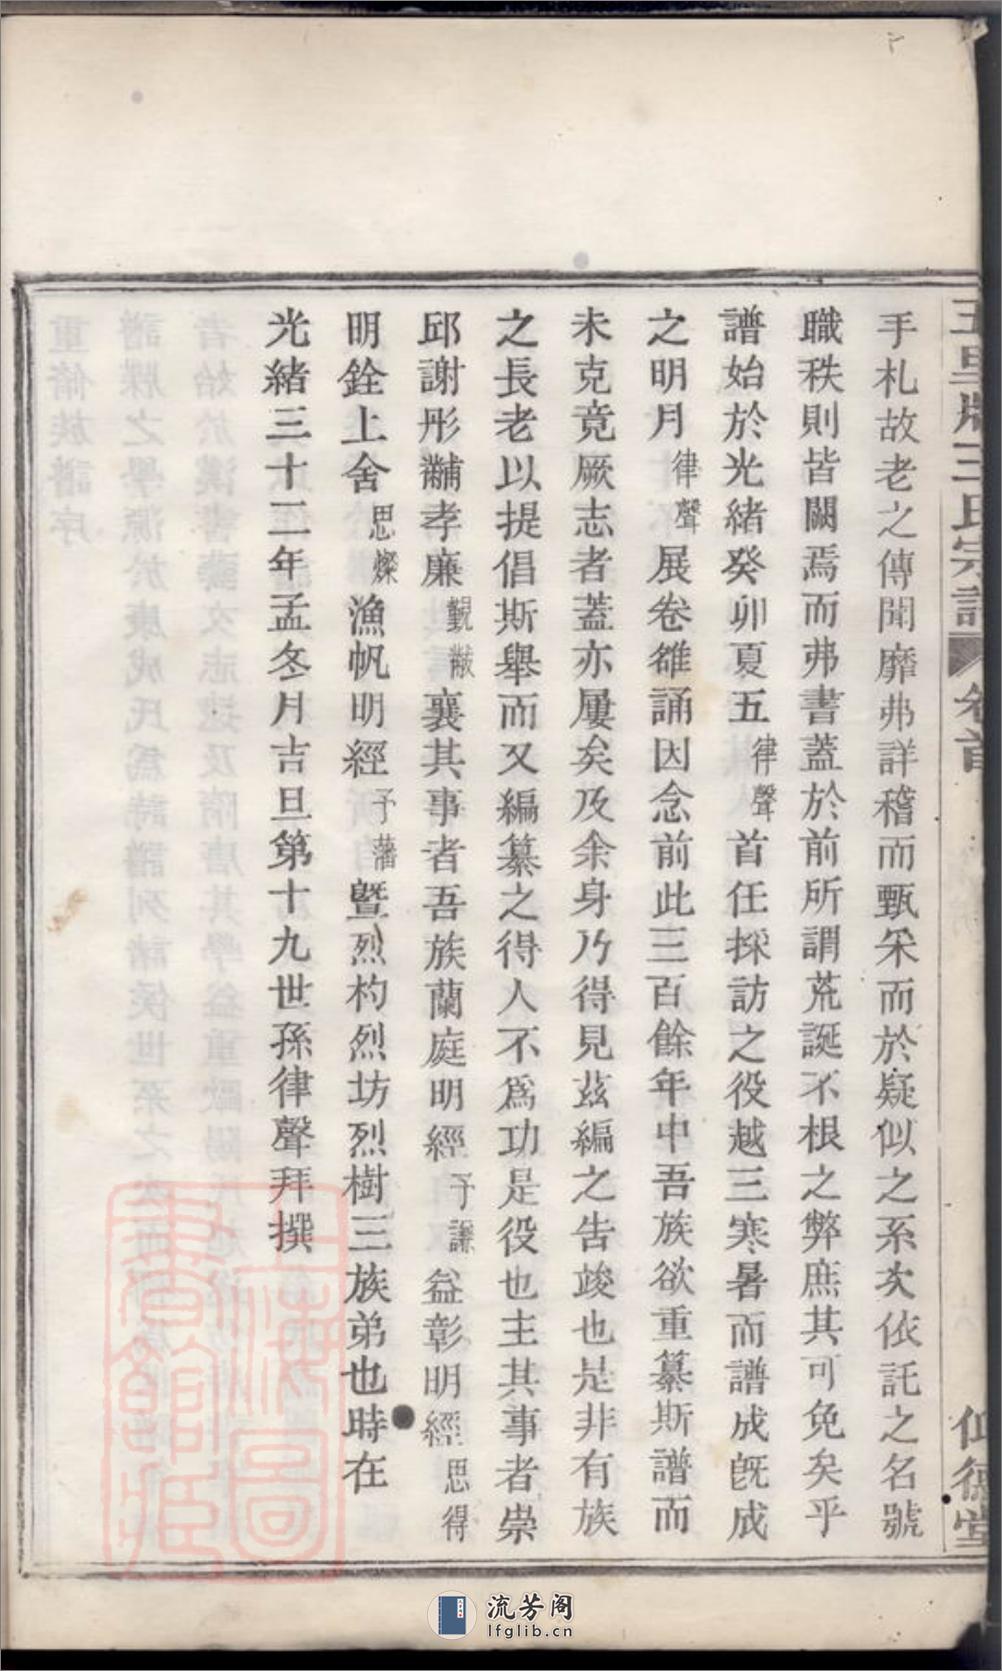 王氏宗譜 卷首 德堂
手札故老之傳聞靡弗詳稽而甄采而於疑似之系次依託之名號
職秩則皆闕焉而弗書蓋於前所謂荒誕不根之弊庶其可免矣乎
譜始於光緒癸卯夏五律聲首任採訪之役越三寒暑而譜成既成
之明月律聲展卷雒誦因念前此三百餘年中吾族欲重纂斯譜而
未克竟厥志者蓋亦屢矣及余身乃得見茲編之告竣也是非有族
之長老以提倡斯舉而又編纂之得人不為功是役也主其事者崇
邱謝彤黼孝廉覲黻襄其事者吾族蘭庭明經予謙益彰明經思得
明銓上舍思燦漁帆明經予藩暨烈杓烈坊烈樹三族弟也時在
光緒三十二年孟冬月吉旦第十九世孫律聲拜撰
上海圖書館藏
流芳阁
lfglib.cn